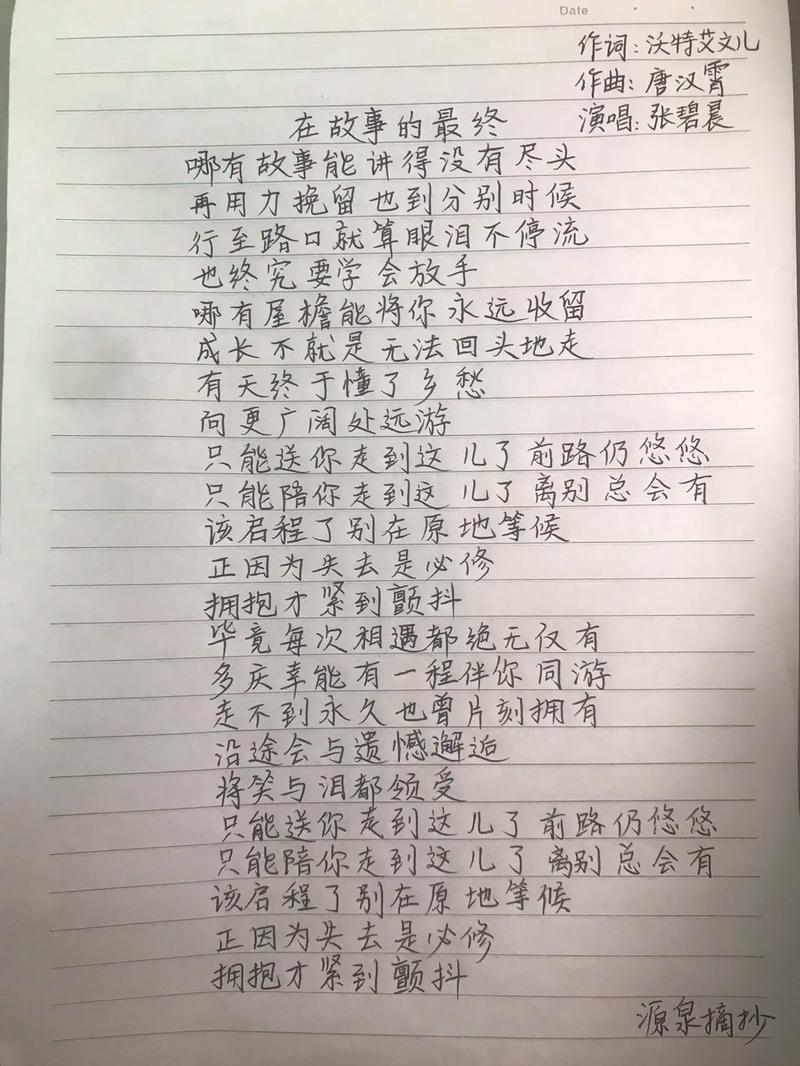 Date
作词:沃特艾文儿
作曲:唐汉霄
演唱:张碧晨
在故事的最终
哪有故事能讲得没有尽头
再用力挽留也到分别时候
行至路口就算眼泪不停流
也终究要学会放手
哪有屋檐能将你永远收留
成长不就是无法回头地走
有天终于懂了乡愁
向更广阔处远游
只能送你走到这儿了前路仍悠悠
只能陪你走到这儿了离别总会有
该启程了别在原地等候
正因为失去是必修
拥抱才紧到颤抖
毕竟每次相遇都绝无仅有
多庆幸能有一程伴你同游
走不到永久也曾片刻拥有
沿途会与遗憾邂逅
将笑与泪都领受
只能送你走到这儿了前路仍悠悠
只能陪你走到这儿了离别总会有
该启程了别在原地等候
正因为失去是必修
拥抱才紧到颤抖
源泉摘抄